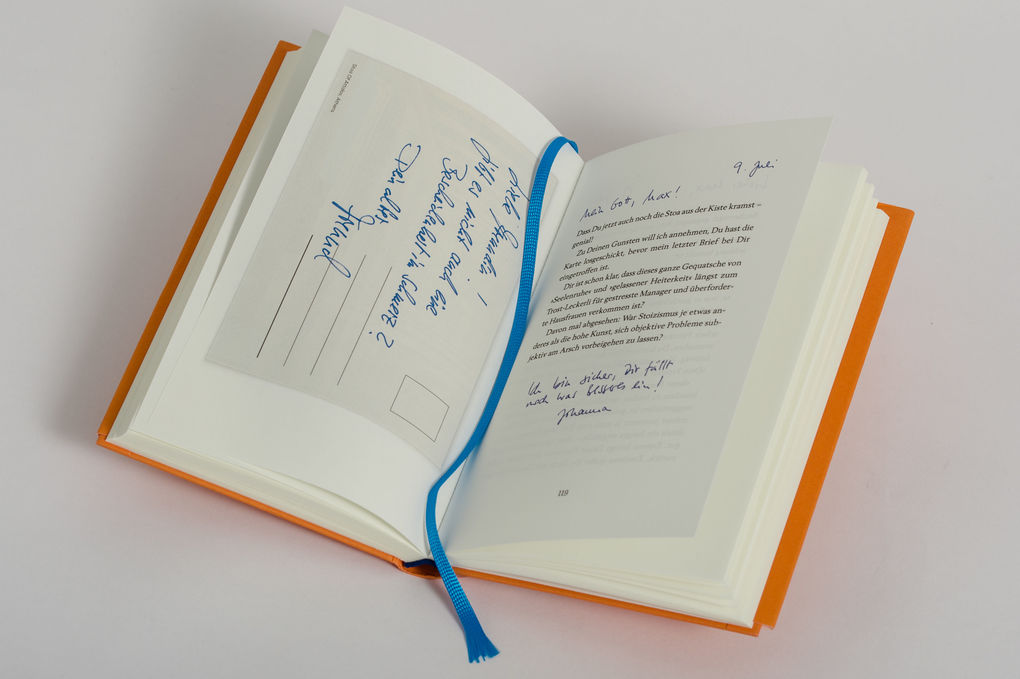 Stoa Of Attalos, Athens
Liebe Freundin!
Gibt es nicht auch eine
Bescheidenheit im Schmerz?
Dein alter
Freund
9. Juli
Mein Gott, Max!
Dass Du jetzt auch noch die Stoa aus der Kiste kramst –
genial!
Zu Deinen Gunsten will ich annehmen, Du hast die
Karte losgeschickt, bevor mein letzter Brief bei Dir
eingetroffen ist.
Dir ist schon klar, dass dieses ganze Gequatsche von
›Seelenruhe‹ und ›gelassener Heiterkeit‹ längst zum
Trost-Leckerli für gestresste Manager und überforder-
te Hausfrauen verkommen ist?
Davon mal abgesehen: War Stoizismus je etwas an-
deres als die hohe Kunst, sich objektive Probleme sub-
jektiv am Arsch vorbeigehen zu lassen?
Ich bin sicher, Dir fällt
noch was Besseres ein!
Johanna
119